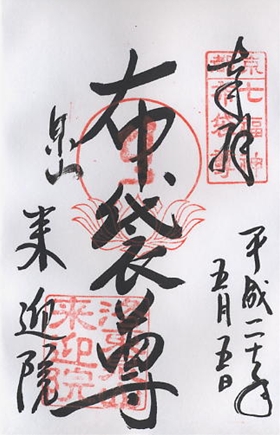 奉拝
七福神
平成二十年
五月五日
布袋尊
泉山
来迎院
来迎院